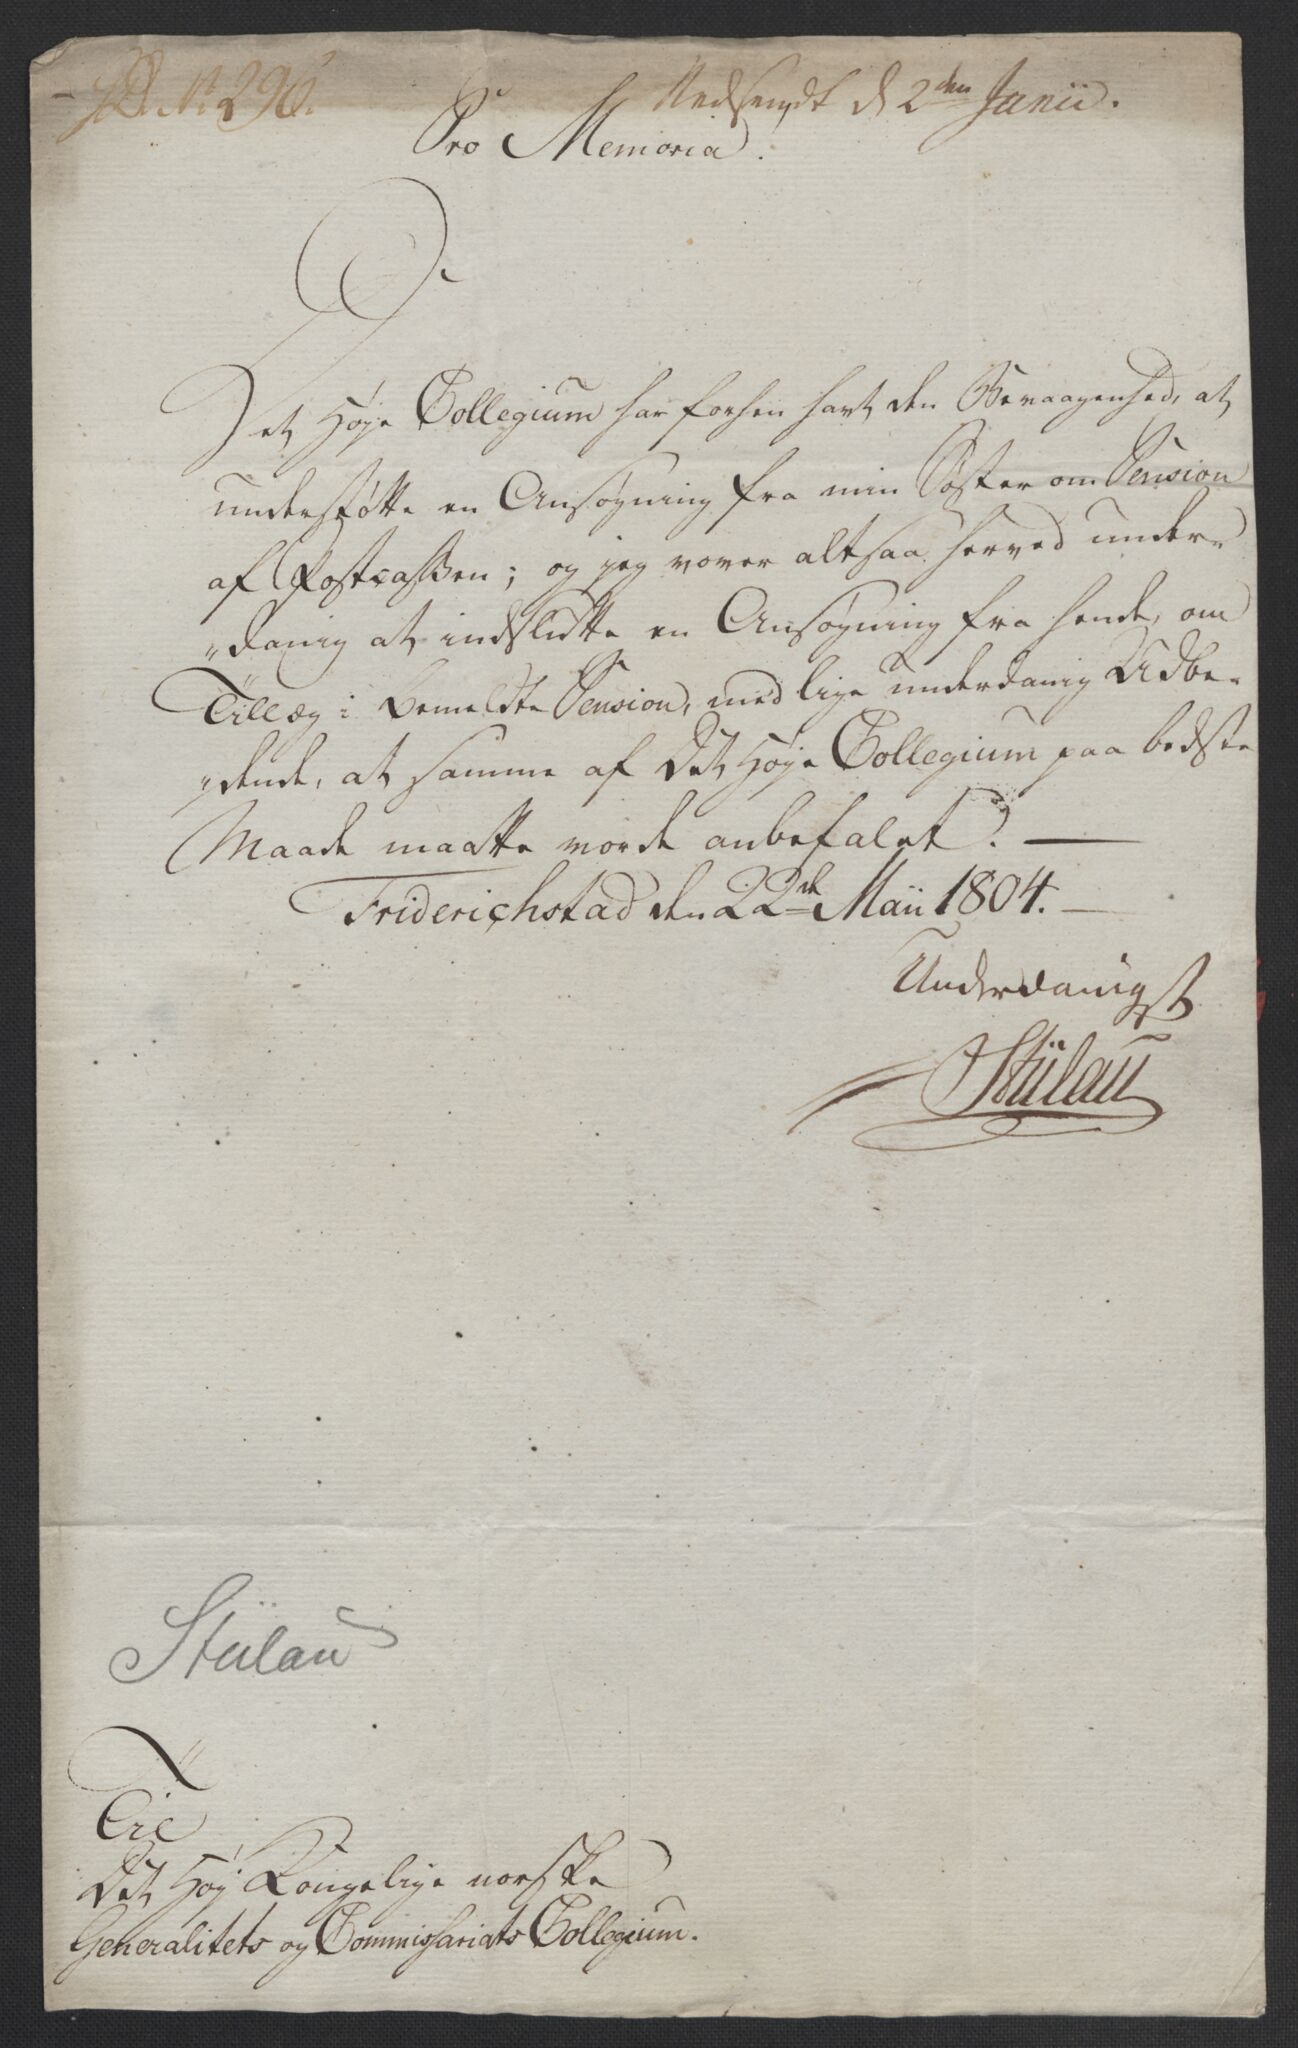 No. 296.
Nedsendt d 2den Junii.
Pro Memoria.
Det Høye Collegium har forhen havt den Bevaagenhed, at
understøtte en Ansøgning fra min Søster om Pension
af Postcassen; og jeg vover altsaa herved under-
„danig at indslutte en Ansøgning fra hende, om
Tillæg i bemeldte Pension, med lige underdanig Udbe-
„dende, at samme af Det Høye Collegium paa bedste
Maade maatte vorde anbefalet. —
Friderichstad den 22de Maii 1804. —
Underdanigst
Stülau
Stülau
Til
Det Høy Kongelige norske
Generalitets og Commissariats Collegium.